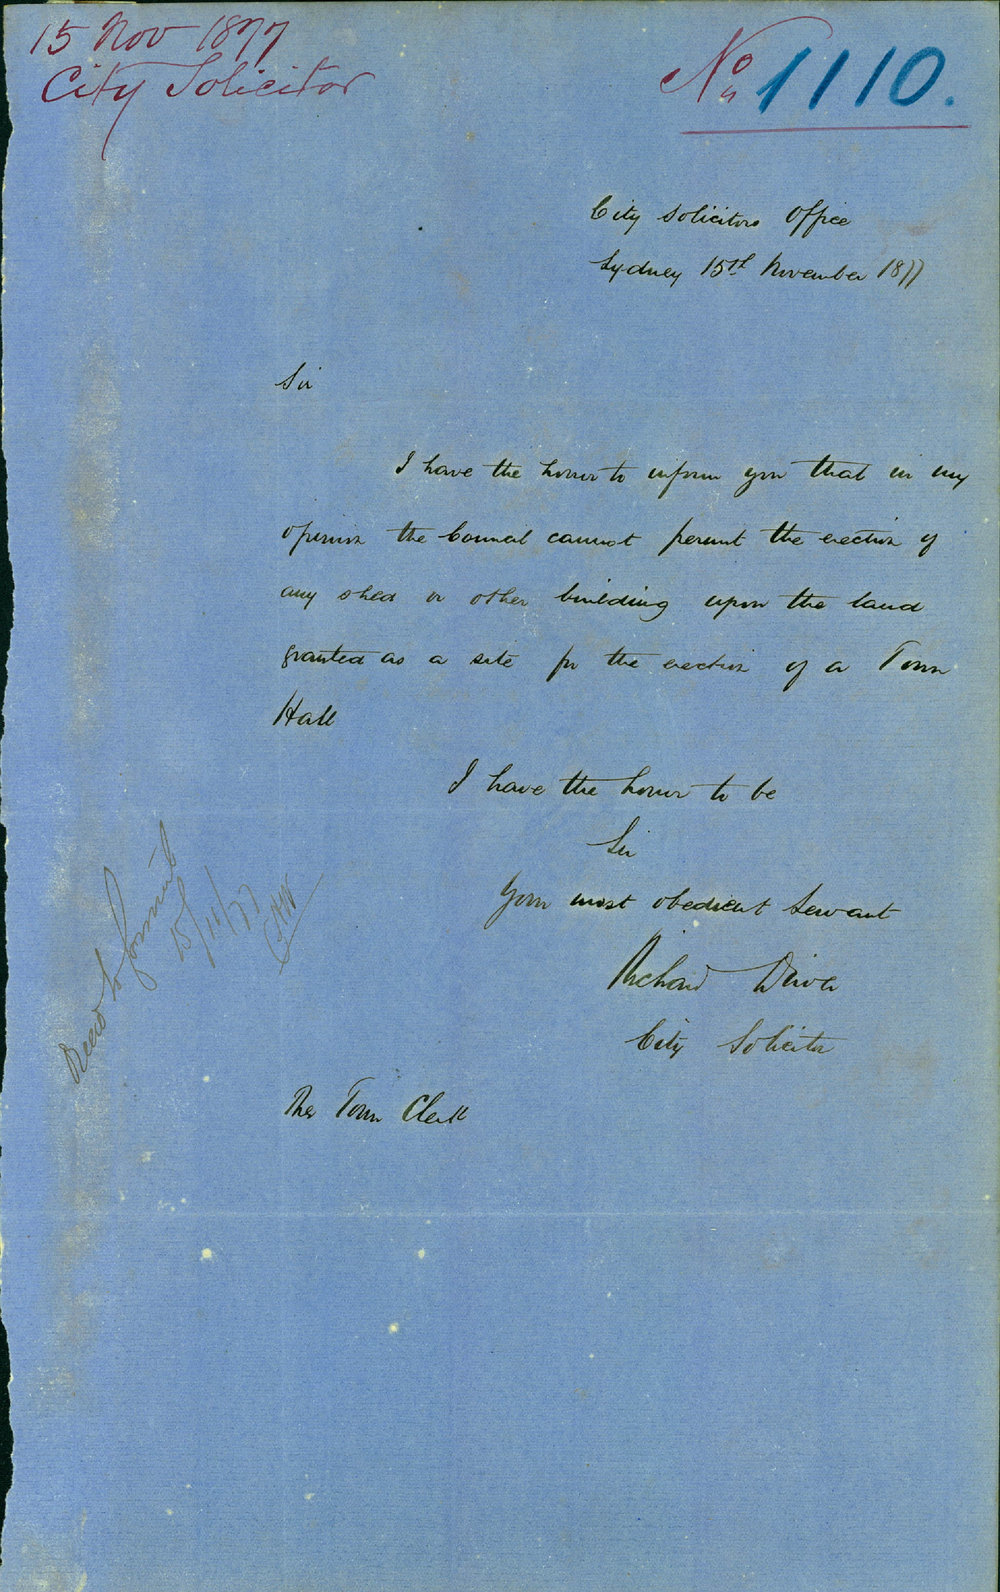 15 Nov 1877
City Solicitor
No 1110.
City Solicitors Office
Sydney 15th November 1877
Sir
I have the honor to inform you that in my
opinion the Council cannot permit the erection of
any shed or other building upon the land
granted as a site for the erection of a Town
Hall
I have the honor to be
Sir
Your most obedient Servant
Richard Driver
City Solicitor
The Town Clerk
to Committee
15/11/77